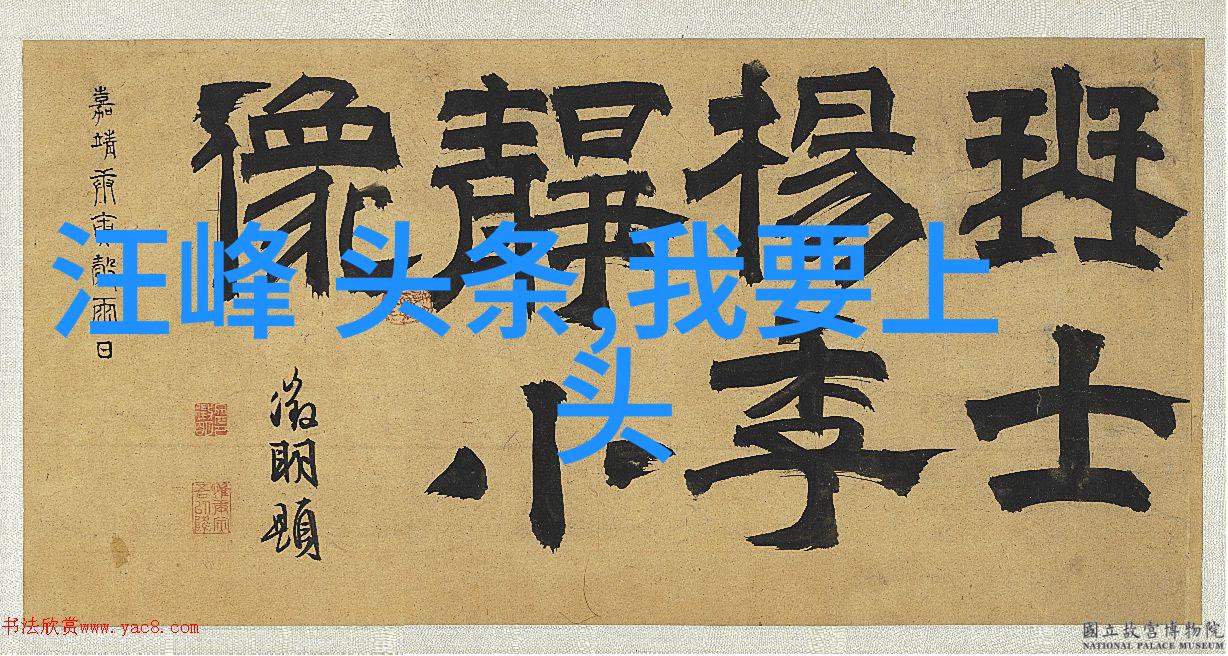 班士
楊季
靜小
像
嘉靖庚寅穀雨日
徵明題
汪峰 头条,我要上
头
书法欣赏www.yac8.com
國立故宮博物院
NATIONAL PALACE MUSEUM